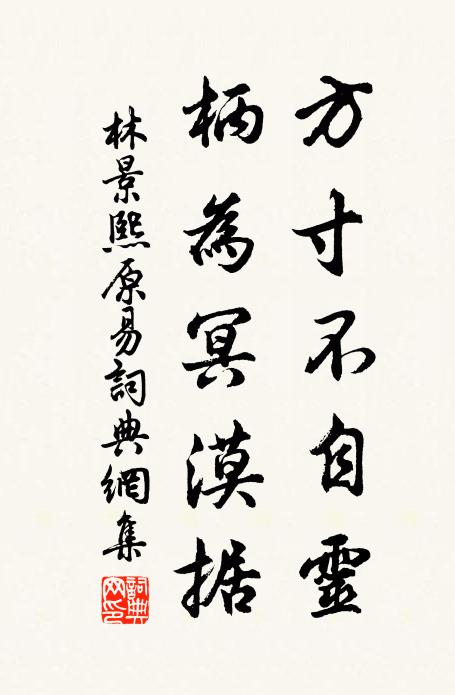 方寸不自靈
柄為冥漠据
林景熙原易詞典網集
詞典網印